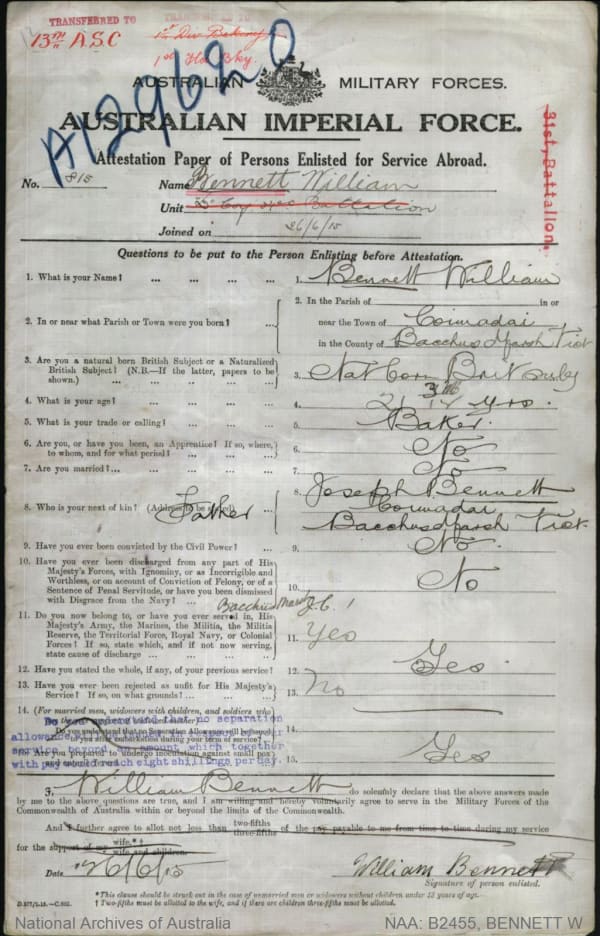 TRANSFERRED TO
13TH A.S.C
1st Div Bakery
1st Fld Bky.
A129620
AUSTRALIAN MILITARY FORCES.
AUSTRALIAN IMPERIAL FORCE.
Attestation Paper of Persons Enlisted for Service Abroad.
31st, Battalion.
No. 815 Name Bennett William
Unit D Coy 31st Battalion
Joined on 26/6/15
Questions to be put to the Person Enlisting before Attestation.
1. What is your Name? ... ... ... ... 1. Bennett William
2. In or near what Parish or Town were you born? ...
2. In the Parish of in or
near the Town of Coimadai
in the County of Bacchus Marsh Vict
3. Are you a natural born British Subject or a Naturalized
British Subject? (N.B.—If the latter, papers to be
shown.) ... ... ... ... ... 3. Nat born Brit Subj
4. What is your age? ... ... ... ... 4. 21 yrs.
5. What is your trade or calling? ... ... ... 5. Baker.
6. Are you, or have you been, an Apprentice? If so, where,
to whom, and for what period? ... ... ... 6. No
7. Are you married? ... ... ... ... 7. No
8. Who is your next of kin? (Address to be stated) Father
8. Joseph Bennett
Coimadai
Bacchus Marsh Vict.
9. Have you ever been convicted by the Civil Power? ... 9. No.
10. Have you ever been discharged from any part of His
Majesty's Forces, with Ignominy, or as Incorrigible and
Worthless, or on account of Conviction of Felony, or of a
Sentence of Penal Servitude, or have you been dismissed
with Disgrace from the Navy? ... 10. No
Bacchus Marsh
11. Do you now belong to, or have you ever served in, His
Majesty's Army, the Marines, the Militia, the Militia
Reserve, the Territorial Force, Royal Navy, or Colonial
Forces? If so, state which, and if not now serving,
state cause of discharge ... ... ... 11. Yes
12. Have you stated the whole, if any, of your previous service? 12. Yes.
13. Have you ever been rejected as unfit for His Majesty's
Service? If so, on what grounds? ... ... ... 13. No
14. (For married men, widowers with children, and soldiers who
Do you understand that no separation
allowance will be issued
Do you understand that no Separation Allowance will be issued
service beyond an amount which together
15. Are you prepared to undergo inoculation against small pox
and enteric fever? 15. Yes
with pay would reach eight shillings per day.
I, William Bennett do solemnly declare that the above answers made
by me to the above questions are true, and I am willing and hereby voluntarily agree to serve in the Military Forces of the
Commonwealth of Australia within or beyond the limits of the Commonwealth.
And I further agree to allot not less than two-fifths three-fifths of the pay payable to me from time to time during my service
for the support of my wife.*†
wife and children.
Date 26/6/15 William Bennett
Signature of person enlisted.
*This clause should be struck out in the case of unmarried men or widowers without children under 18 years of age.
† Two-fifths must be allotted to the wife, and if there are children three-fifths must be allotted.
National Archives of Australia NAA: B2455, BENNETT W